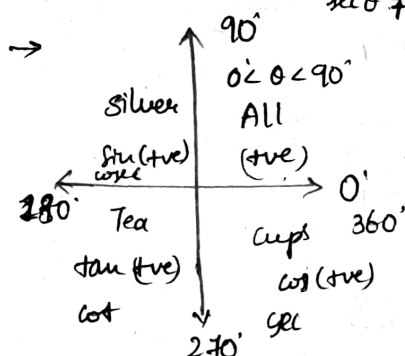 sec θ
→
90°
0°< θ < 90°
silver
All
sin (+ve)
cosec
(+ve)
0°
180°
360°
Tea
cups
tan (+ve)
cos (+ve)
cot
sec
270°